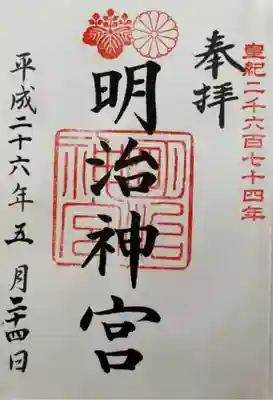 皇紀二千六百七十四年
奉拝
明治神宮
明治神宮
平成二十六年五月二十四日